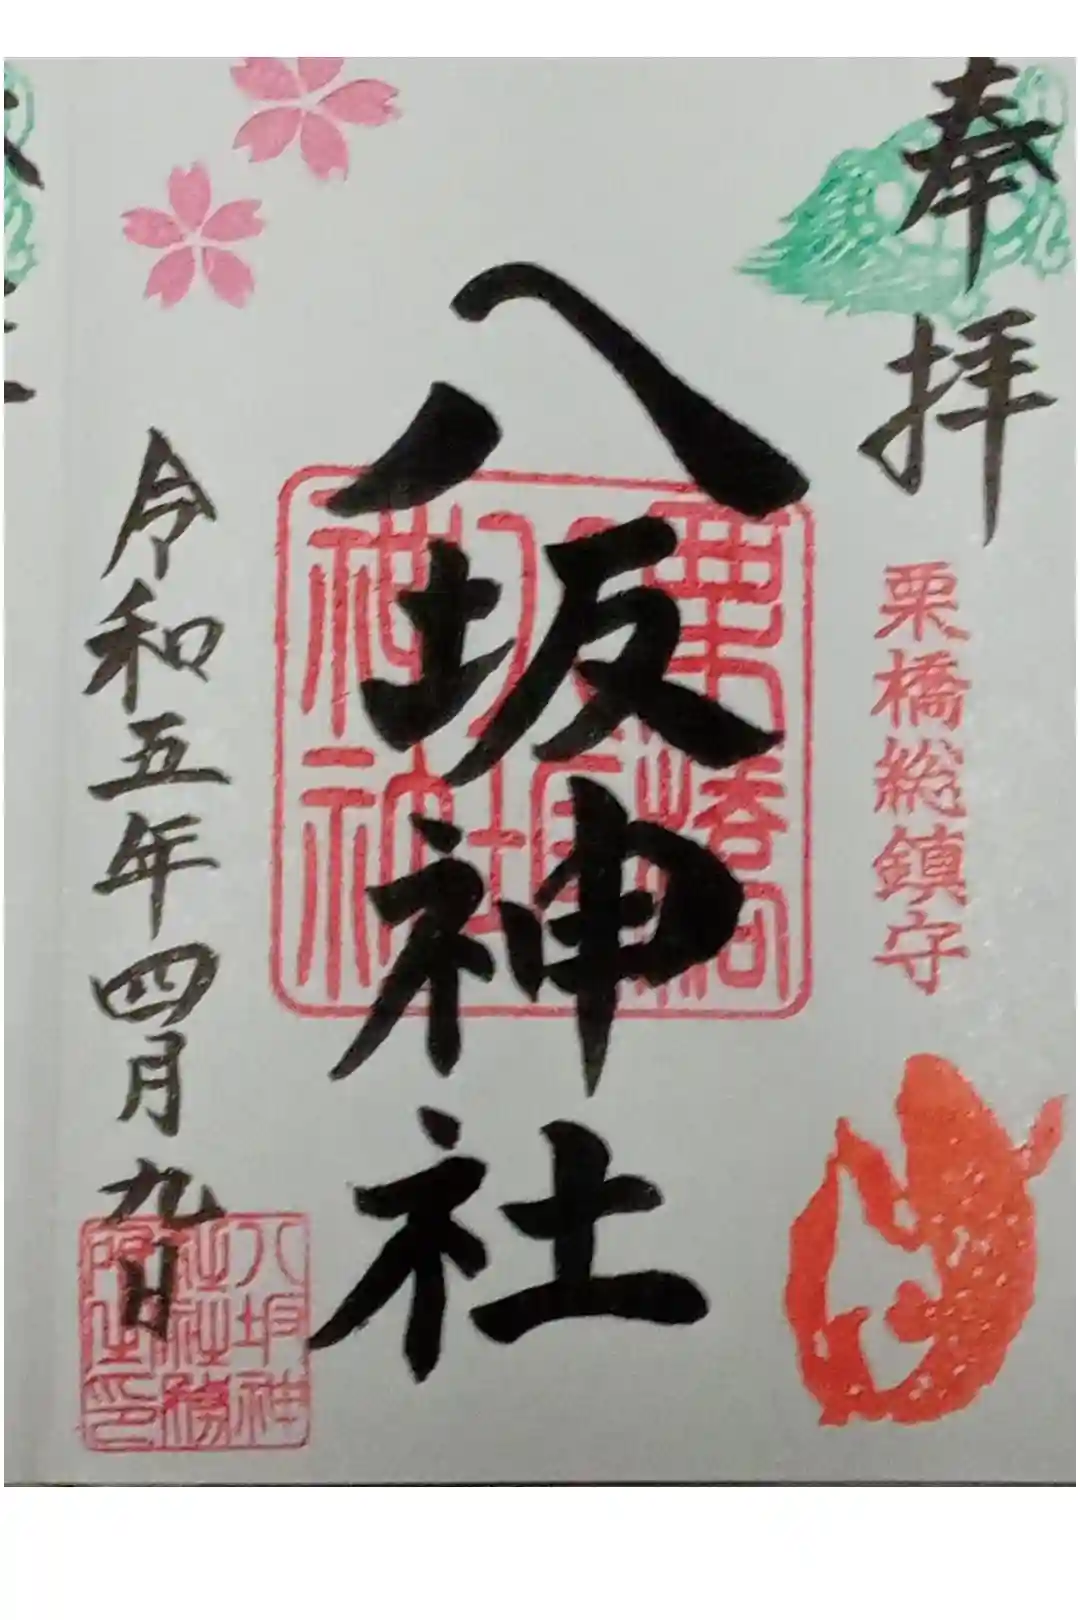 奉拝
栗橋総鎮守
八坂神社
栗橋
八坂
神社
令和五年四月九日
八坂神
社社務
所之印